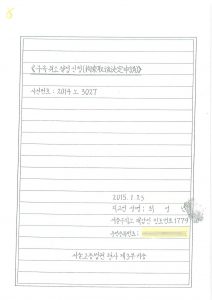 《구속 취소 결정 신청 (拘束取消決定申請)》
사건번호 : 2014 노 3027
2015. 1. 23
피고인 성명 :
서울구치소 수용번호 1779
주민등록번호 :
서울고등법원 형사 제3부 귀중